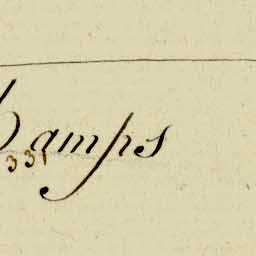 amps
331